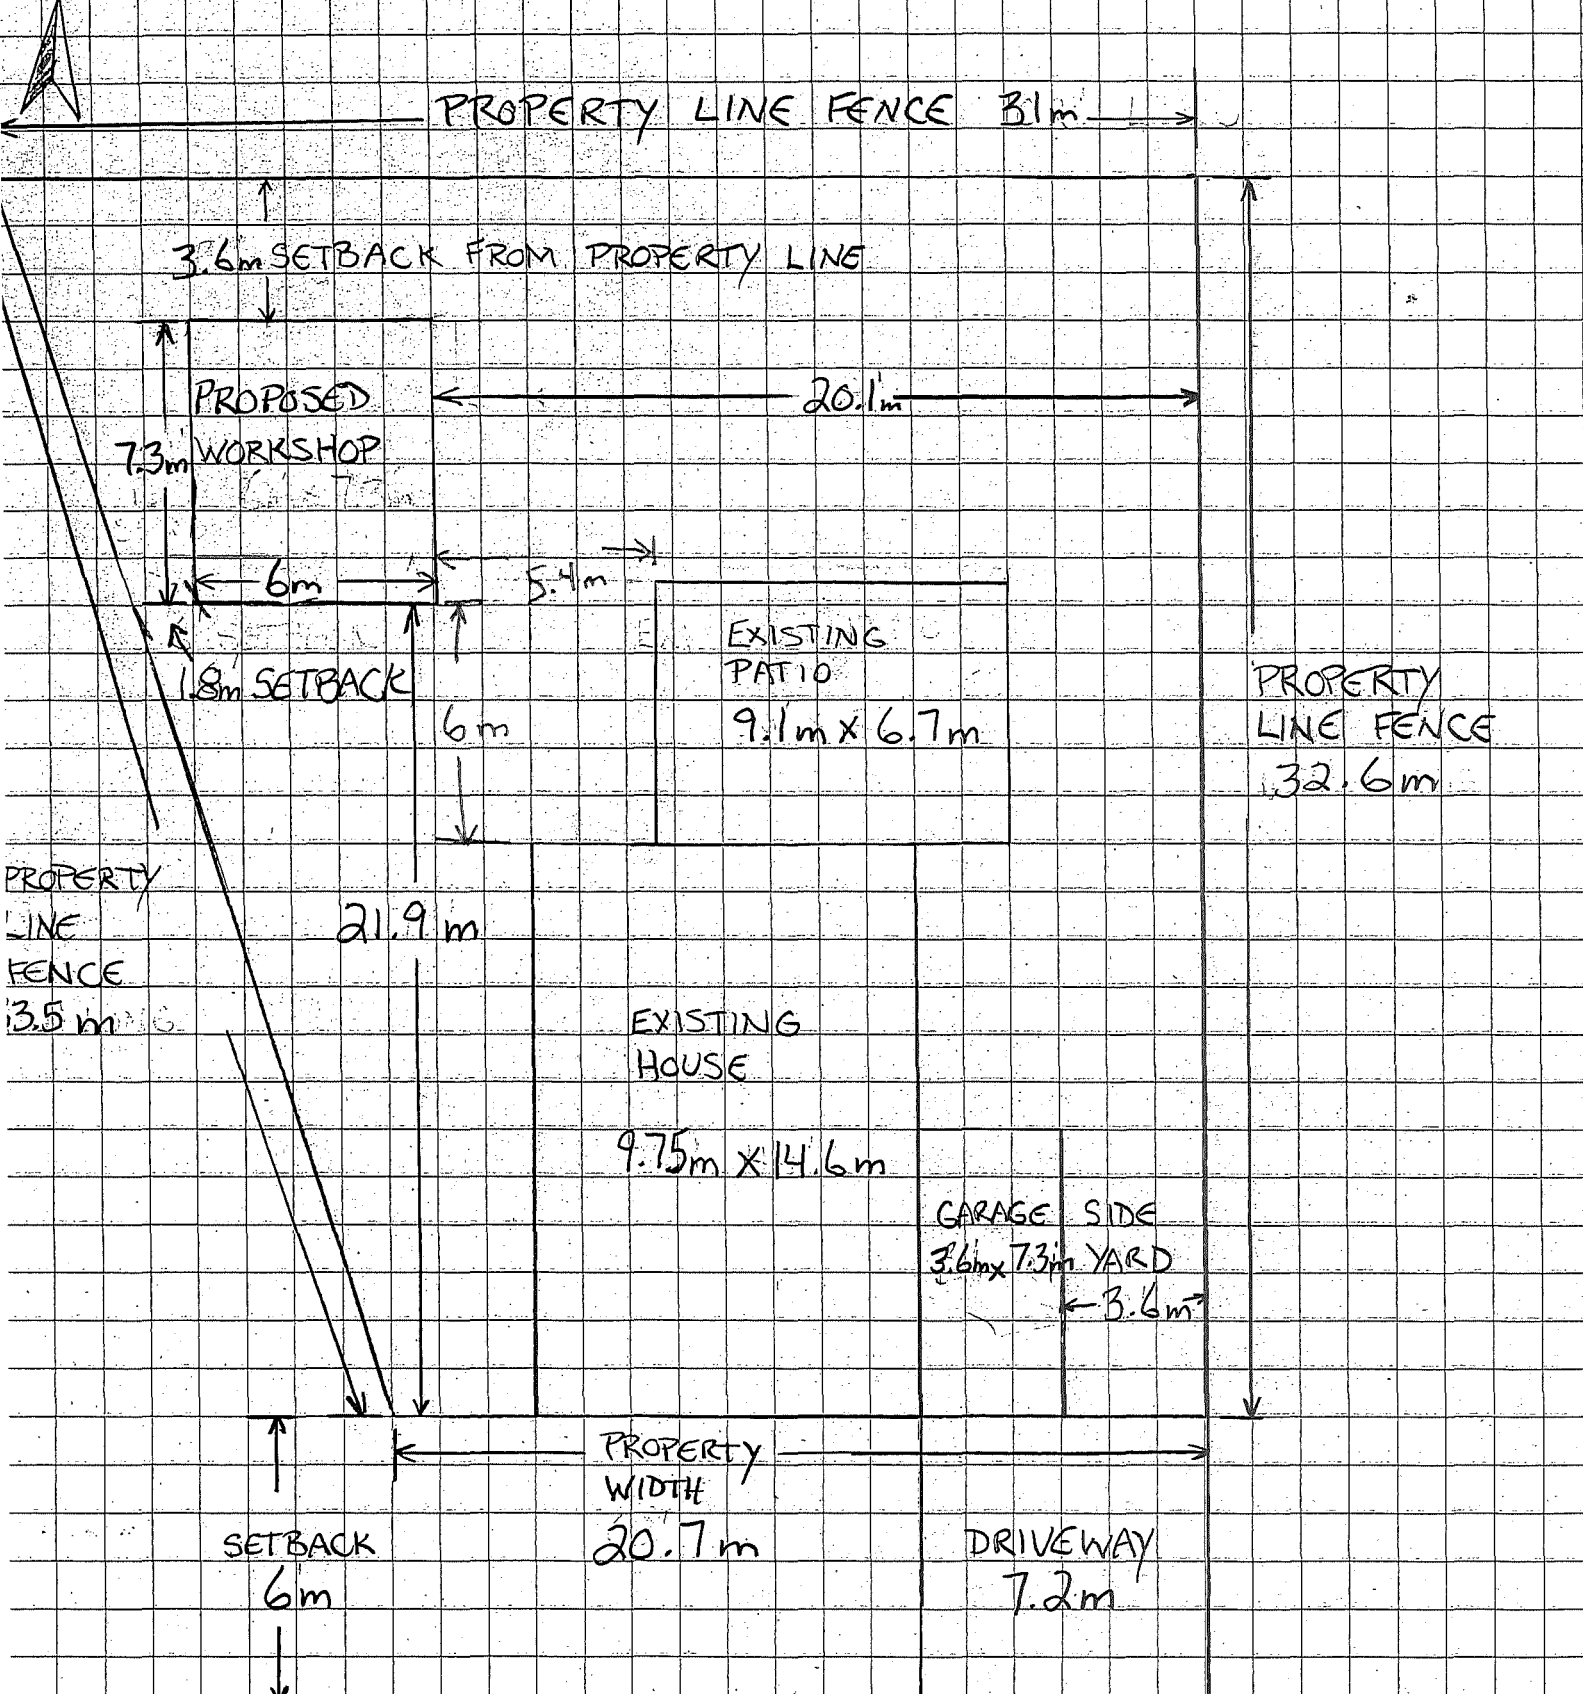 PROPERTY LINE FENCE 31m
3.6m SETBACK FROM PROPERTY LINE
PROPOSED
WORKSHOP
7.3m
20.1m
6m
5.4m
1.8m SETBACK
6m
EXISTING
PATIO
9.1m x 6.7m
PROPERTY
LINE FENCE
32.6m
PROPERTY
LINE
FENCE
3.5m
21.9 m
EXISTING
HOUSE
9.75m x 14.6m
GARAGE
3.6m x 7.3m
SIDE
YARD
3.6m
PROPERTY
WIDTH
20.7m
SETBACK
6m
DRIVEWAY
7.2m